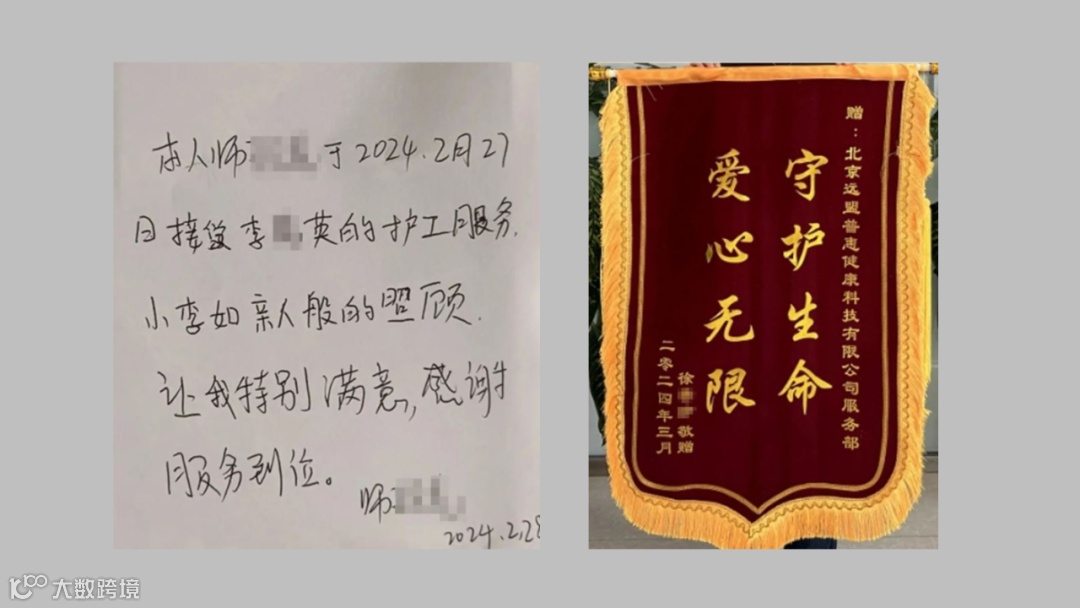 本人师于2024.2月27
日接受李英的护工服务.
小李如亲人般的照顾.
让我特别满意,感谢
服务到位。
师
2024.2.28
赠：北京远盟普惠健康科技有限公司服务部
守护生命
爱心无限
徐敬赠
二零二四年三月
大数跨境